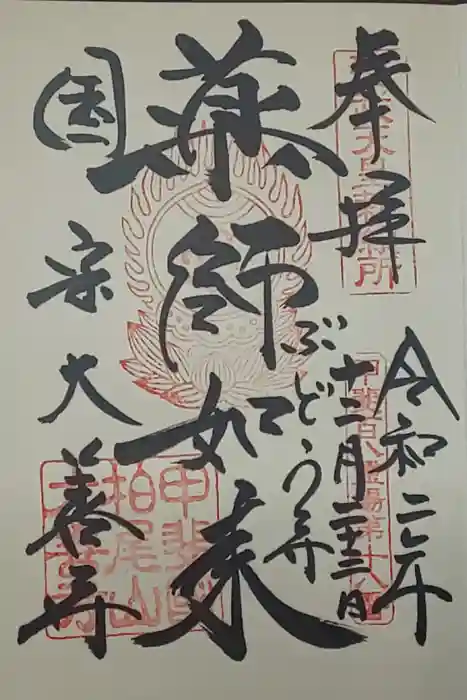 奉拝
聖武天皇勅願所
令和二年
十二月二十三日
甲斐百八霊場第十八番
ぶどう寺
薬師如来
国宝大善寺
甲斐國
柏尾山
大善寺